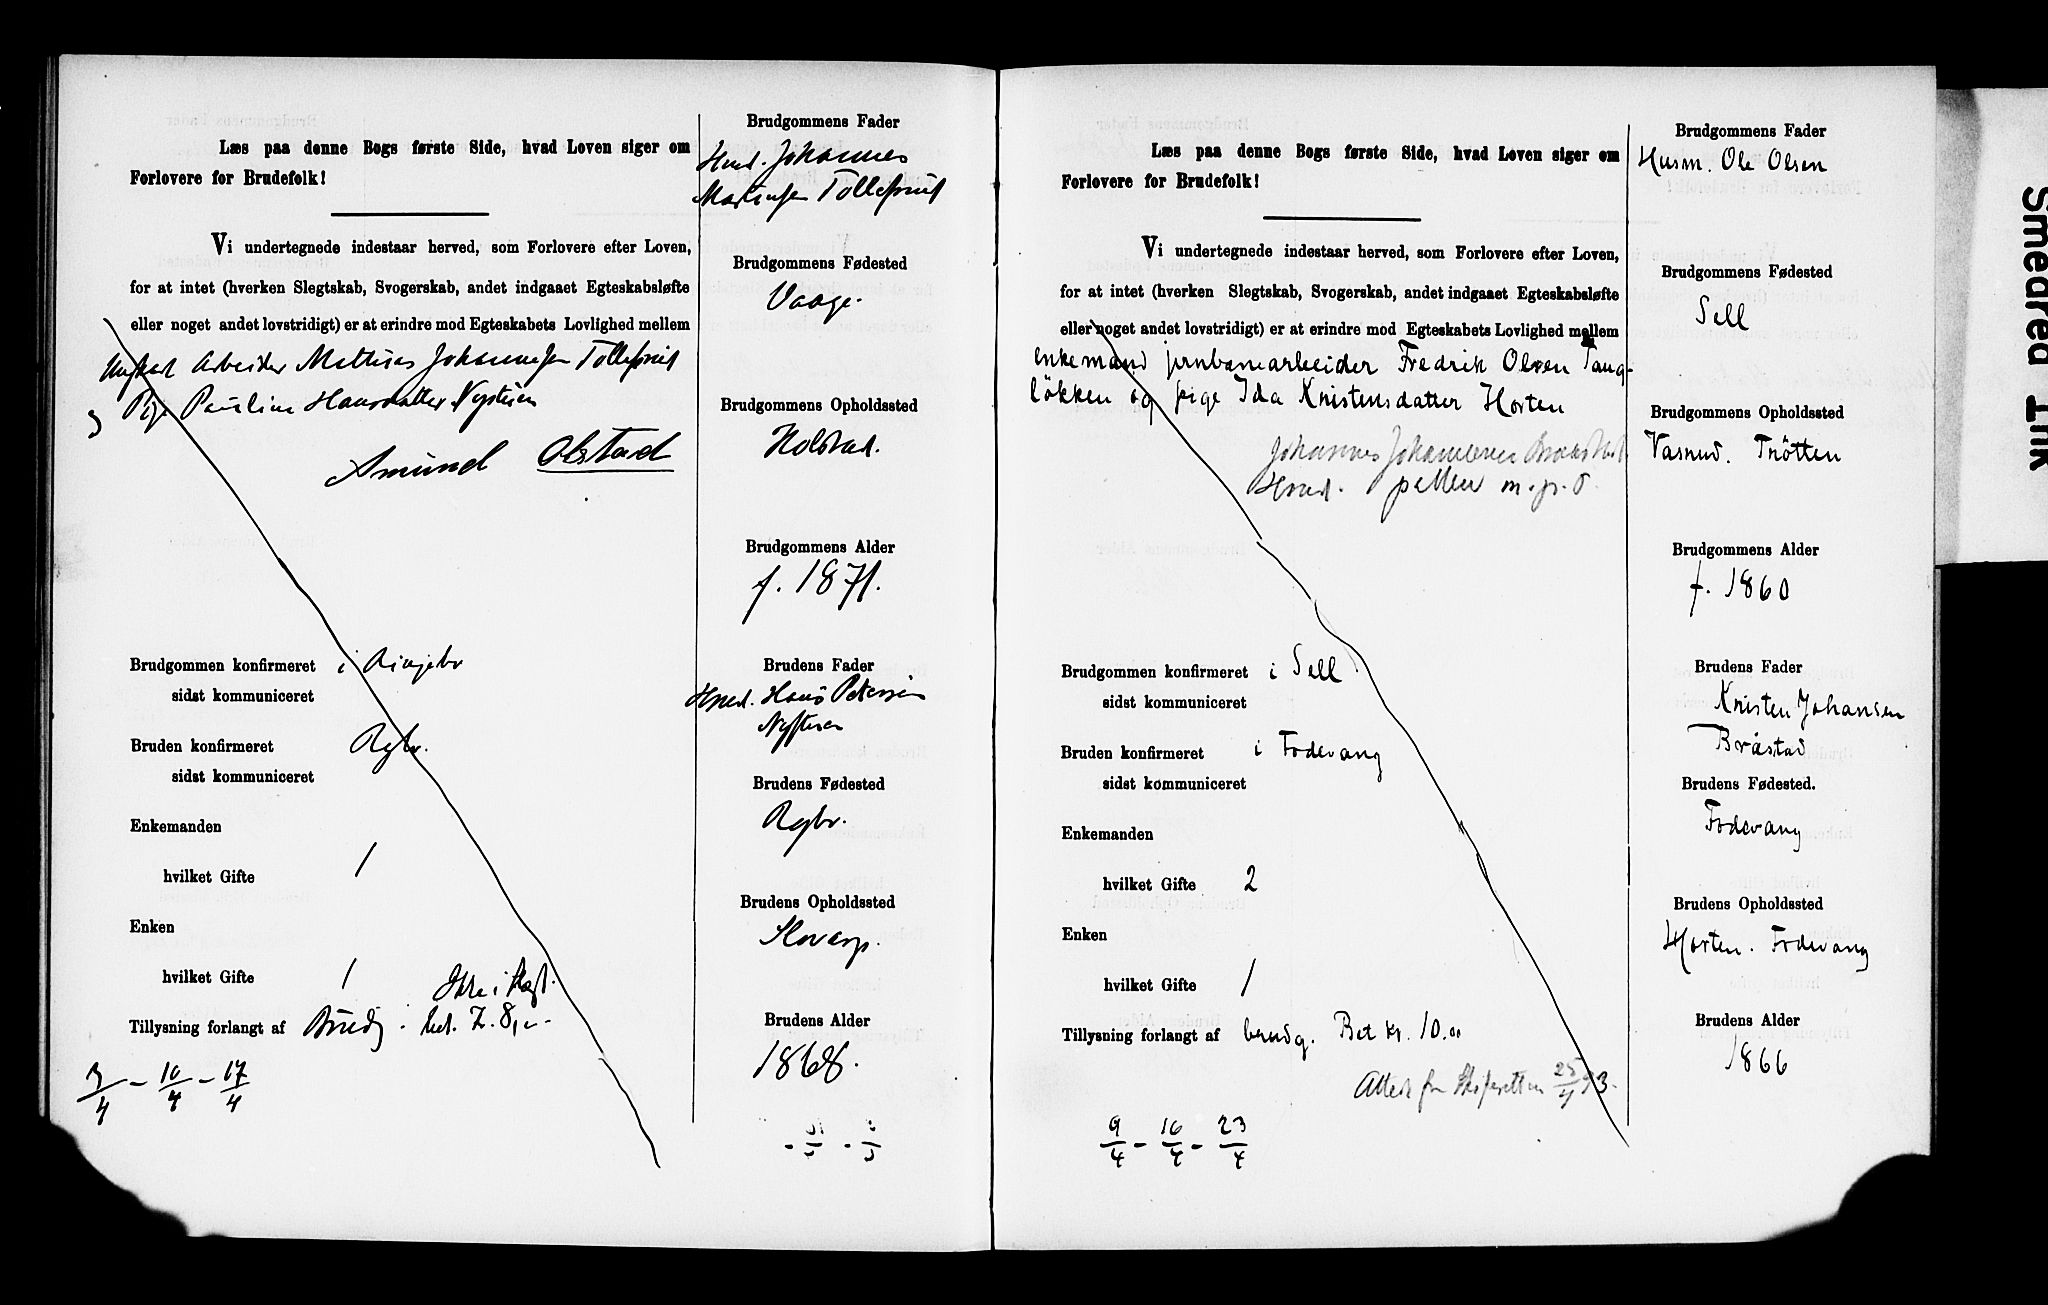 Læs paa denne Bogs første Side, hvad Loven siger om
Forlovere for Brudefolk!
Vi undertegnede indestaar herved, som Forlovere efter Loven,
for at intet (hverken Slegtskab, Svogerskab, andet indgaaet Egteskabsløfte
eller noget andet lovstridigt) er at erindre mod Egteskabets Lovlighed mellem
Ungkarl Arbeider Mathias Johannesen Tollefsrud
og Pige Pauline Hansdatter Nystuen
Amund Olstad
Brudgommen konfirmeret i Ringebr
sidst kommuniceret
Bruden konfirmeret Rgbr.
sidst kommuniceret
Enkemanden
hvilket Gifte 1
Enken
hvilket Gifte 1
Ikke i Slegt.
Tillysning forlangt af Brudg. bet. 8,-
3/4 - 10/4 - 17/4
Brudgommens Fader
Hmd. Johannes
Martinsen Tollefsrud
Brudgommens Fødested
Vaage.
Brudgommens Opholdssted
Holstad.
Brudgommens Alder
f. 1871.
Brudens Fader
Hmd. Hans Petersen
Nystuen
Brudens Fødested
Rgbr.
Brudens Opholdssted
Brudens Alder
1868.
Læs paa denne Bogs første Side, hvad Loven siger om
Forlovere for Brudefolk!
Vi undertegnede indestaar herved, som Forlovere efter Loven,
for at intet (hverken Slegtskab, Svogerskab, andet indgaaet Egteskabsløfte
eller noget andet lovstridigt) er at erindre mod Egteskabets Lovlighed mellem
enkemand jernbanearbeider Fredrik Olsen Taug-
løkken og pige Ida Kristensdatter Horten
Johannes Johannesen
m. p. P.
Brudgommen konfirmeret i Sell
sidst kommuniceret
Bruden konfirmeret i Fodvang
sidst kommuniceret
Enkemanden
hvilket Gifte 2
Enken
hvilket Gifte 1
Tillysning forlangt af brudg. Bet kr. 10.00
Attest fra Skifteretten 25/4 93.
9/4 - 16/4 - 23/4
Brudgommens Fader
Husm. Ole Olsen
Brudgommens Fødested
Sell
Brudgommens Opholdssted
Vasrud. Trötten
Brudgommens Alder
f. 1860
Brudens Fader
Kristen Johansen
Bråstad
Brudens Fødested.
Fodvang
Brudens Opholdssted
Horten. Fodvang
Brudens Alder
1866
Smeared Ink